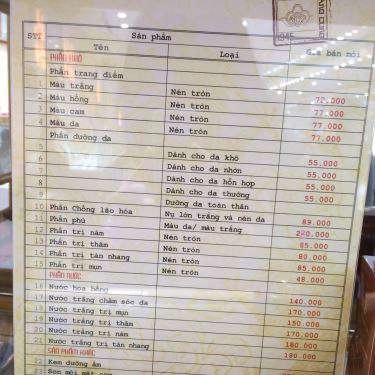 1945
STT Sản phẩm
Tên Loại Giá bán mới
PHẤN KHÔ
Phấn trang điểm
1 Màu trắng Nén tròn 77.000
2 Màu hồng Nén tròn 77.000
3 Màu cam Nén tròn 77.000
4 Màu da Nén tròn 77.000
Phấn dưỡng da
5 Dành cho da khô 55.000
6 Dành cho da nhờn 55.000
7 Dành cho da hỗn hợp 55.000
8 Dành cho da thường 55.000
9 Dưỡng da toàn thân
10 Phấn Chống lão hóa Nụ lớn trắng và nén da 89.000
11 Phấn phủ Màu da/ màu trắng
12 Phấn trị nám Nén tròn 85.000
13 Phấn trị thâm Nén tròn 80.000
14 Phấn trị tàn nhang Nén tròn 85.000
15 Phấn trị mụn Nén tròn 48.000
PHẤN NƯỚC
16 Nước hoa hồng 140.000
17 Nước trắng chăm sóc da 170.000
18 Nước trắng trị mụn 150.000
19 Nước trắng trị thâm 170.000
20 Nước trắng trị nám 180.000
21 Nước trắng trị tàn nhang 180.000
SẢN PHẨM KHÁC
22 Kem dưỡng ẩm
23 Son môi